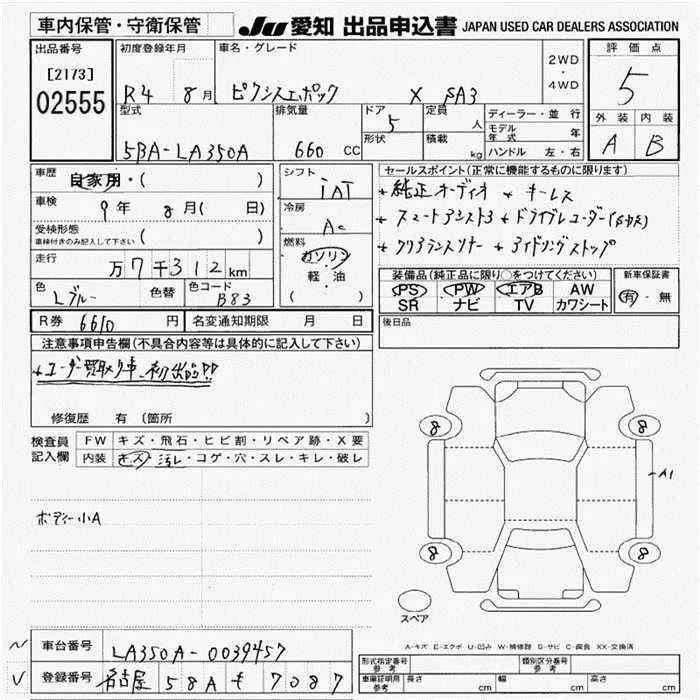 車内保管・守衛保管 JU 愛知 出品申込書 JAPAN USED CAR DEALERS ASSOCIATION
出品番号 [2173] 02555
初度登録年月 R4 8月
車名・グレード ピクシスエポック X SA3
2WD・4WD
評価点 5
外装 A 内装 B
型式 5BA-LA350A
排気量 660 CC
ドア 5
形状
定員 人
積載 kg
ディーラー・並行
モデル年式 年
ハンドル 左・右
車歴 自家用・( )
車検 9年 8月( 日)
受検形態 車検付きのみ記入して下さい ( )
走行 万7千312km
色 Lブルー 色替 色コード B83
シフト IAT
冷房 AC
燃料 ガソリン・軽・油 ( )
セールスポイント(正常に機能するものに限ります)
* 純正オーディオ * キーレス
* スマートアシスト3 * ドライブレコーダー
* クリアランスソナー * アイドリングストップ
装備品(純正品に限り○をつけてください)
PS PW エアB AW
SR ナビ TV カワシート
新車保証書 有・無
R券 6610 円 名変通知期限 月 日
後日品
注意事項申告欄(不具合内容等は具体的に記入して下さい)
*ユーザー買取り車、初出品!!
修復歴 有 (箇所 )
検査員記入欄
FW キズ・飛石・ヒビ割・リペア跡・X要
内装 キズ・汚レ・コゲ・穴・スレ・キレ・破レ
ボディー小A
8 8
A1
8 8
スペア
A-キズ E-エクボ U-凹み W-補修跡 S-サビ C-腐食 XX-交換済
車台番号 LA350A-0039457
登録番号 名古屋 58A 7087
形式指定番号 参考 類別区分番号 参考
車庫証明用 参考 長さ cm 幅 cm 高さ cm